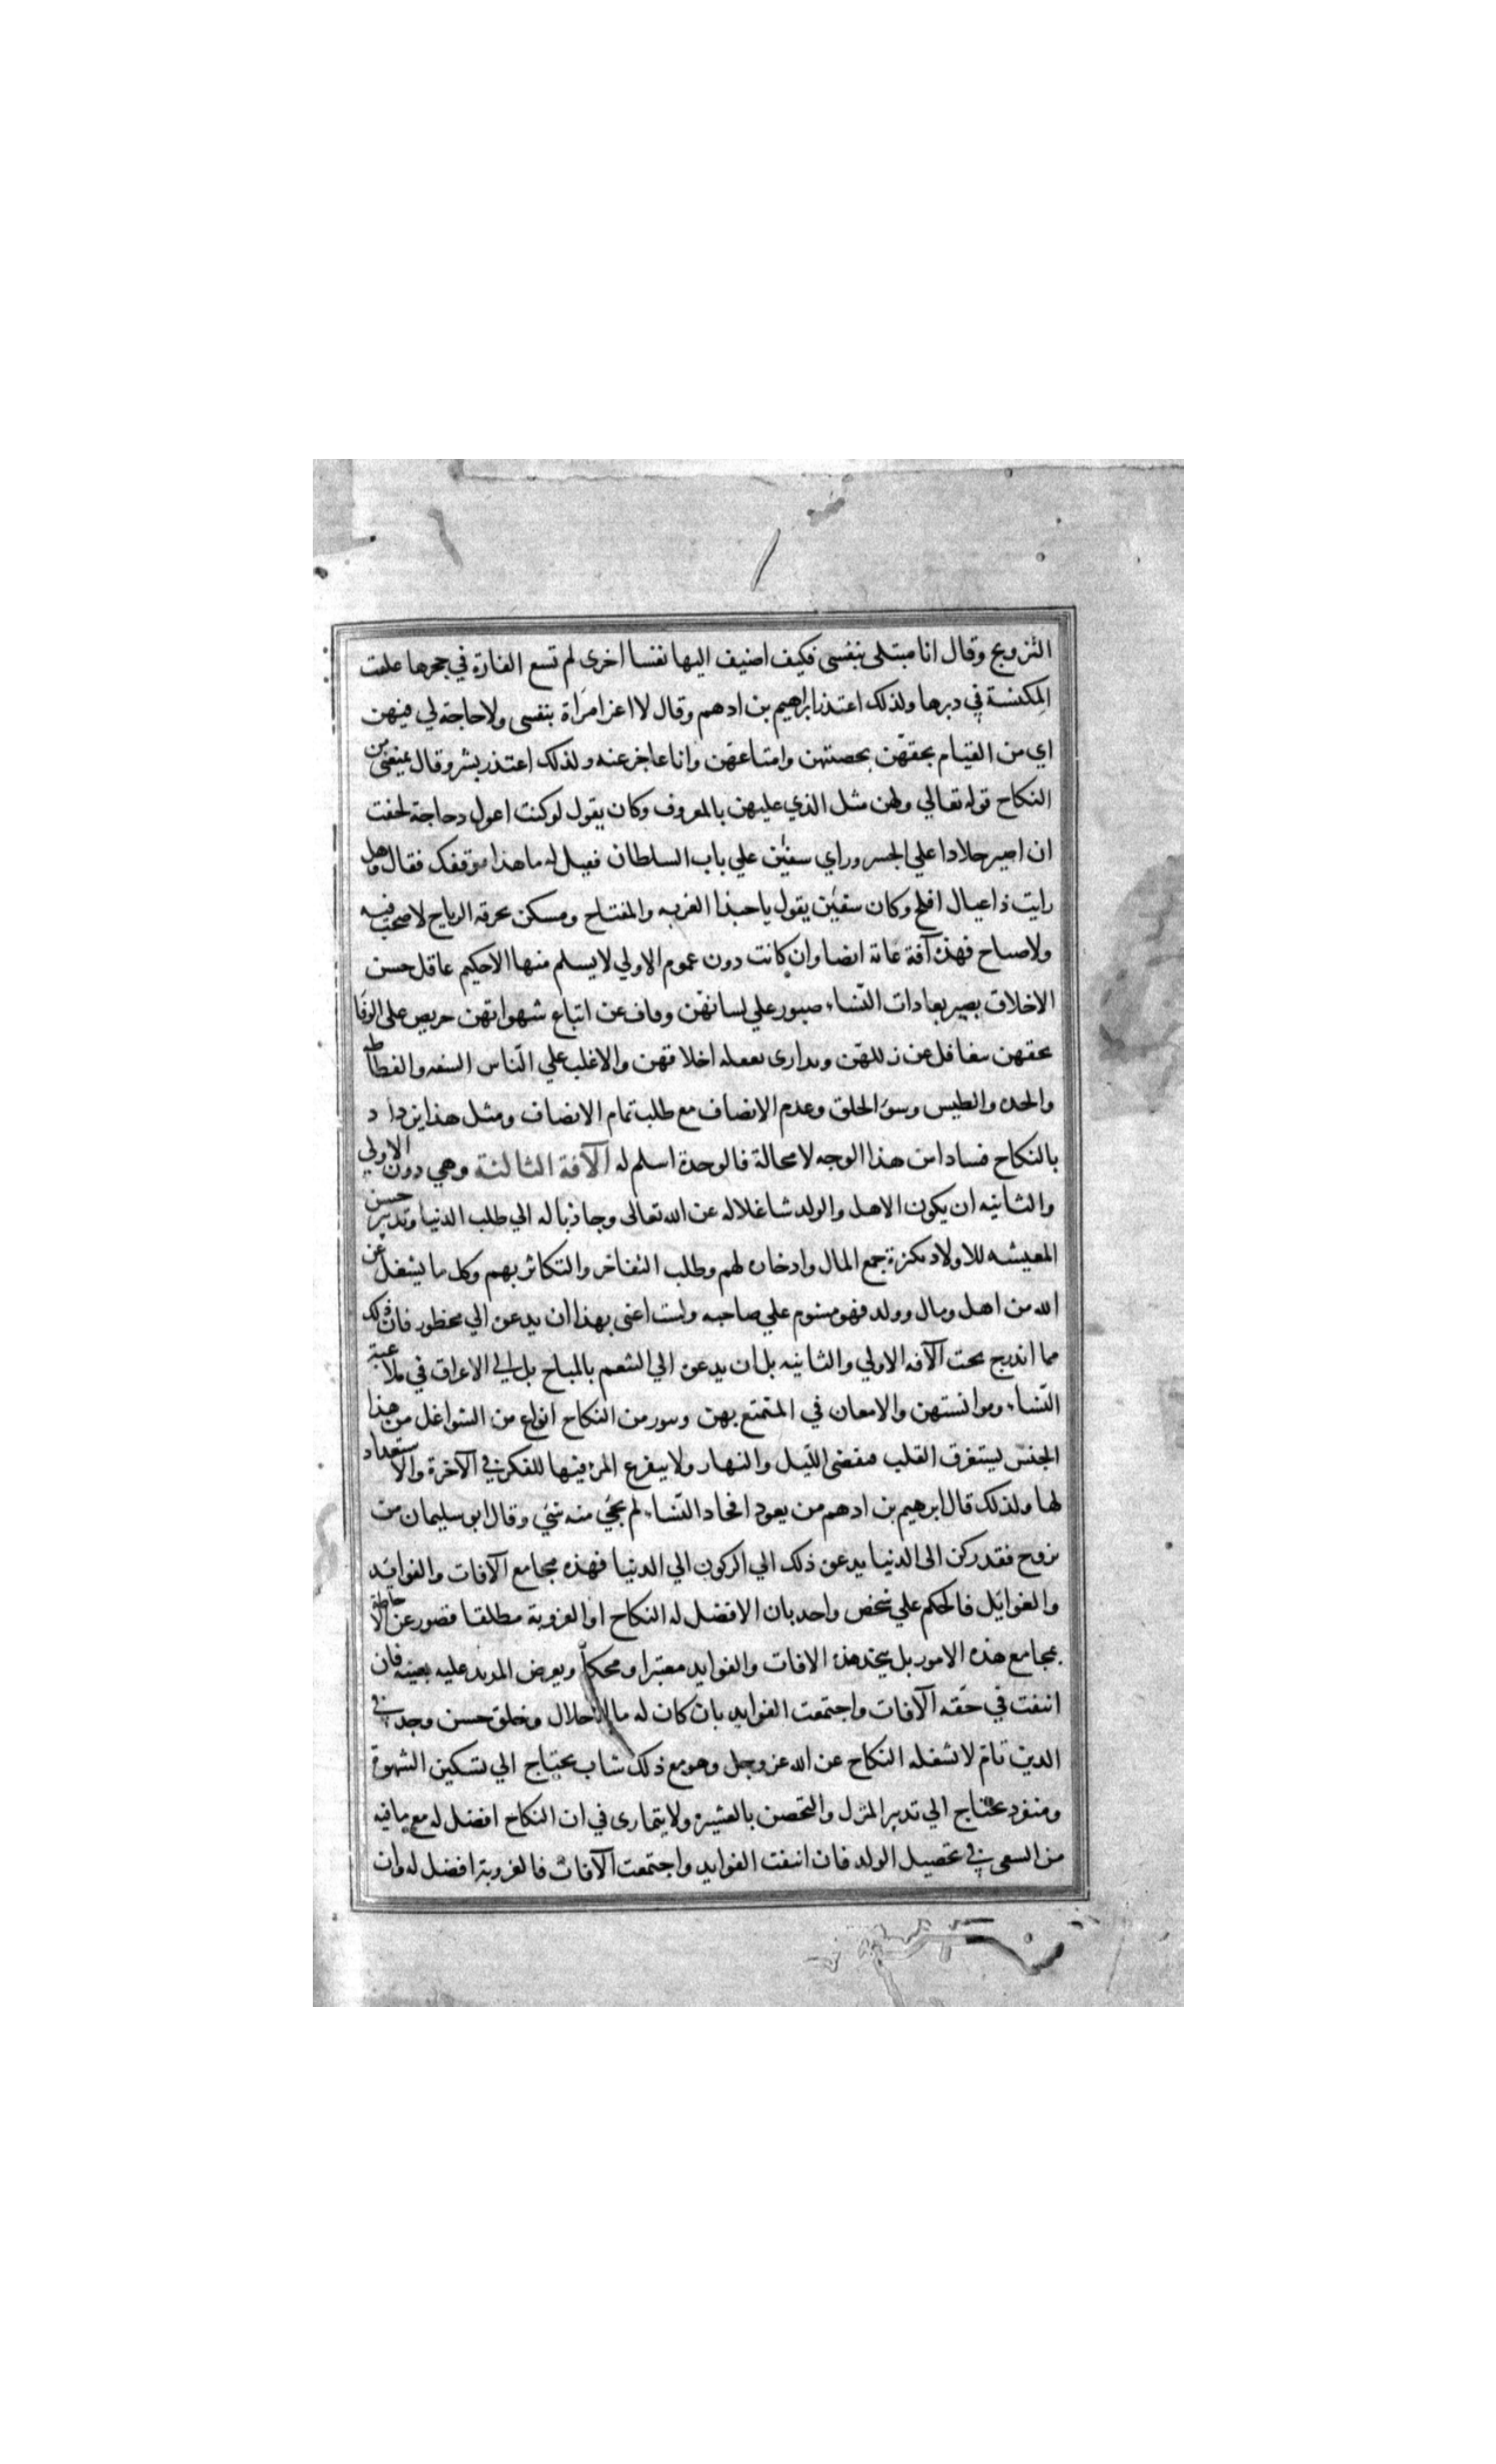 التزويج وقال انا مبتلى بنفسى فكيف اضيف اليها نفسا اخرى لم تسع الفارة في جحرها علقت
المكنسة في دبرها ولذلك اعتذر ابراهيم بن ادهم وقال لا اغر امراة بنفسى ولا حاجة لي فيهن
اي من القيام بحقهن بحصتهن وامتاعهن وانا عاجز عنه ولذلك اعتذر بشر وقال يمنعني من
النكاح قوله تعالي ولهن مثل الذي عليهن بالمعروف وكان يقول لو كنت اعول دجاجة لخفت
ان اصير جلادا علي الجسر وراي سفين علي باب السلطان فقيل له ما هذا موقفك فقال وهل
رايت ذا عيال افلح وكان سفين يقول يا حبذا الغربه والمفتاح ومسكن تخرقه الرياح لا صخب فيه
ولا صياح فهذه آفة عامة ايضا وان كانت دون عموم الاولي لا يسلم منها الا حكيم عاقل حسن
الاخلاق بصير بعادات النساء صبور علي لسانهن وقاف عن اتباع شهواتهن حريص على الوفا
بحقهن متغافل عن زللهن ويدارى بعقله اخلاقهن والاغلب علي الناس السفه والفظاظه
والحده والطيش وسوء الخلق وعدم الانصاف مع طلب تمام الانصاف ومثل هذا يزداد
بالنكاح فسادا من هذا الوجه لا محالة فالوحدة اسلم له الآفة الثالثة وهي دون الاولي
والثانيه ان يكون الاهل والولد شاغلا له عن الله تعالى وجاذبا له الي طلب الدنيا وتدبير حسن
المعيشه للاولاد بكثرة جمع المال وادخاره لهم وطلب التفاخر والتكاثر بهم وكل ما يشغل عن
الله من اهل ومال وولد فهو مشوم علي صاحبه ولست اعنى بهذا ان يدعن الي محظور فان ذلك
مما اندرج تحت الآفه الاولي والثانيه بل ان يدعن الي التنعم بالمباح بل الي الاغراق في ملاعبة
النساء وموانستهن والامعان في التمتع بهن وسور من النكاح انواع من الشواغل من هذا
الجنس يستغرق القلب فينقضى الليل والنهار ولا يتفرغ المرء فيها للفكر في الآخرة والاستعداد
لها ولذلك قال ابرهيم بن ادهم من يعود افخاد النساء لم يجي منه شي وقال ابو سليمان من
تزوج فقد ركن الى الدنيا يدعن ذلك الي الركون الي الدنيا فهذه مجامع الآفات والفوايد
والغوايل فالحكم علي شخص واحد بان الافضل له النكاح او العزوبة مطلقا قصور عن الاحاطة
بمجامع هذه الامور بل يتخذ هذه الافات والفوايد معتبرا ومحكا ويعرض المريد عليه بعينه فان
انتفت في حقه الآفات واجتمعت الفوايد بان كان له مال حلال وخلق حسن وجد في
الدين تام لا تشغله النكاح عن الله عز وجل وهو مع ذلك شاب يحتاج الي تسكين الشهوة
ومنفرد يحتاج الي تدبير المنزل والتحصن بالعشيرة ولا يتمارى في ان النكاح افضل له مع ما فيه
من السعى في تحصيل الولد فان انتفت الفوايد واجتمعت الآفات فالعزوبة افضل له وان